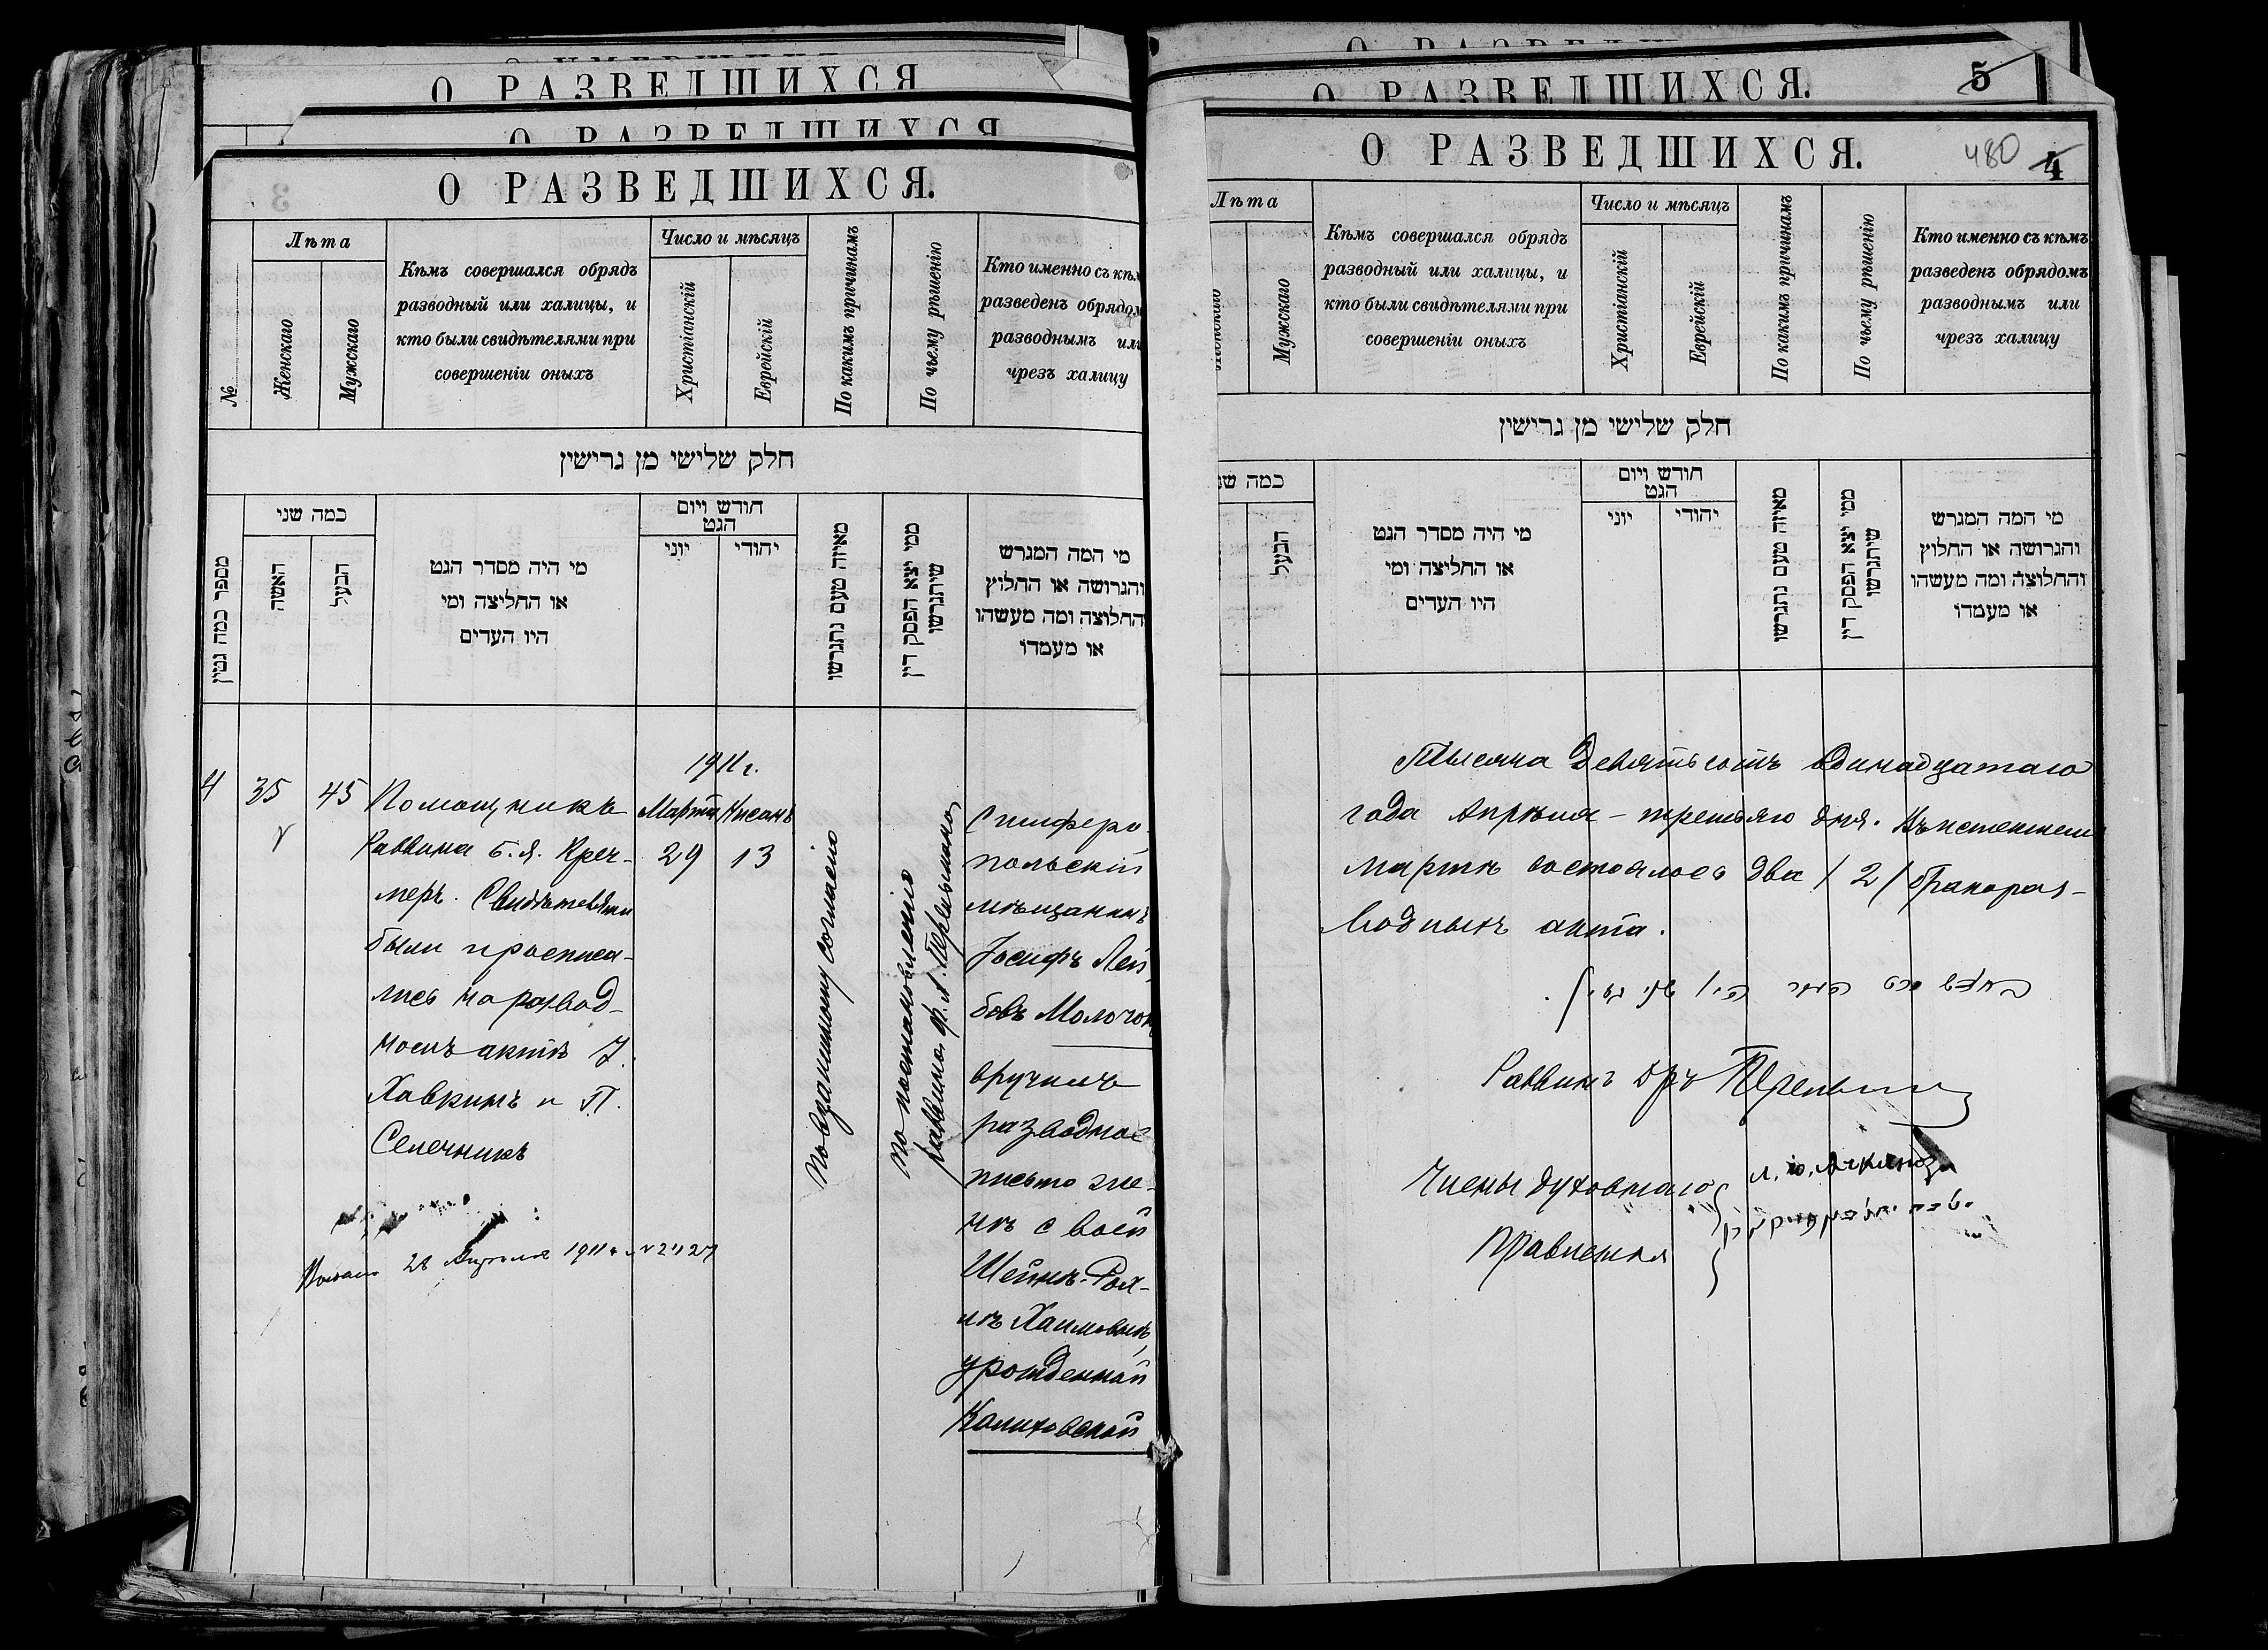 О РАЗВЕДШИХСЯ
О РАЗВЕДШИХСЯ
О РАЗВЕДШИХСЯ.
№
Лѣта
Женскаго
Мужскаго
Кѣмъ совершался обрядъ
разводный или халицы, и
кто были свидѣтелями при
совершеніи оныхъ
Число и мѣсяцъ
Христіанскій
Еврейскій
По какимъ причинамъ
По чьему рѣшенію
Кто именно съ кѣм
разведенъ обрядом
разводнымъ или
чрезъ халицу
חלק שלישי מן גרישין
מספר כמה גטין
כמה שני
האשה
הבעל
מי היה מסדר הגט
או החליצה ומי
היו העדים
חודש ויום
הגט
יוני
יהודי
מאיזה טעם נתגרשו
ממי יצא הפסק דין
שיתגרשו
מי המה המגרש
והגרושה או החלוץ
והחלוצה ומה מעשהו
או מעמדו
4
35
45
Помощникъ
Раввина Б.Я. Креч-
меръ. Свидѣтелями
были и росписа-
лись на развод-
номъ актѣ
Хавкинъ и П.
Селечникъ
1911 г.
Марта
Нисанъ
29
13
По взаимному согласію
по постановленію
раввина
Симферо-
польскій
мѣщанинъ
Іосифъ Лей-
бовъ Молочн
вручилъ
разводное
письмо же-
нѣ своей
Шейнѣ-Рох-
лѣ Хаимовнѣ,
урожденной
28 Апрѣля 1911 г. №
О РАЗВЕДШИХСЯ.
5
О РАЗВЕДШИХСЯ.
480
4
Лѣта
Мужскаго
Кѣмъ совершался обрядъ
разводный или халицы, и
кто были свидѣтелями при
совершеніи оныхъ
Число и мѣсяцъ
Христіанскій
Еврейскій
По какимъ причинамъ
По чьему рѣшенію
Кто именно съ кѣмъ
разведенъ обрядомъ
разводнымъ или
чрезъ халицу
חלק שלישי מן גרישין
כמה שני
הבעל
מי היה מסדר הגט
או החליצה ומי
היו העדים
חודש ויום
הגט
יוני
יהודי
מאיזה טעם נתגרשו
ממי יצא הפסק דין
שיתגרשו
מי המה המגרש
והגרושה או החלוץ
והחלוצה ומה מעשהו
או מעמדו
Тысяча девятьсотъ одинадцатаго
года Апрѣля - третьяго дня. Въ истекшемъ
мартѣ состоялось два /2/ бракораз-
водныхъ акта.
Раввинъ
Члены духовнаго
Правленія